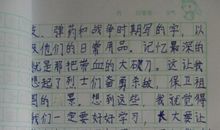 支、弹药和战争时期写的字，以
及他们的日常用品。记忆最深的
就是那把带血的大砍刀。这让我
想起了烈士们奋勇杀敌，保卫祖
国的一景，想到这些，我就觉得
我们一定要好好学习，长大要让